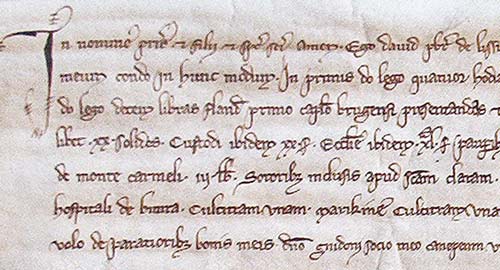 In nomine pr̄is ⁊ filii ⁊ sp̄s sc̄i Amen · Ego david pb̄r de lissi
meum condo in hunc modum · In primis do lego quatuor hoda
do lego decem libras fland̄ primo capl̄o brugensi presentandas ⁊
libet · xx · solidos · Custodi ibidem xx · s̄ · Ecctīe ibidem · xl · s̄
de monte carmeli · iij · lb̄ · Sororibȝ inclusis apud sc̄am claram ·
hospitali de Culcitram unam · Culcitram una
volo de paratioribȝ bonis meis · dn̄o guidoni socio meo